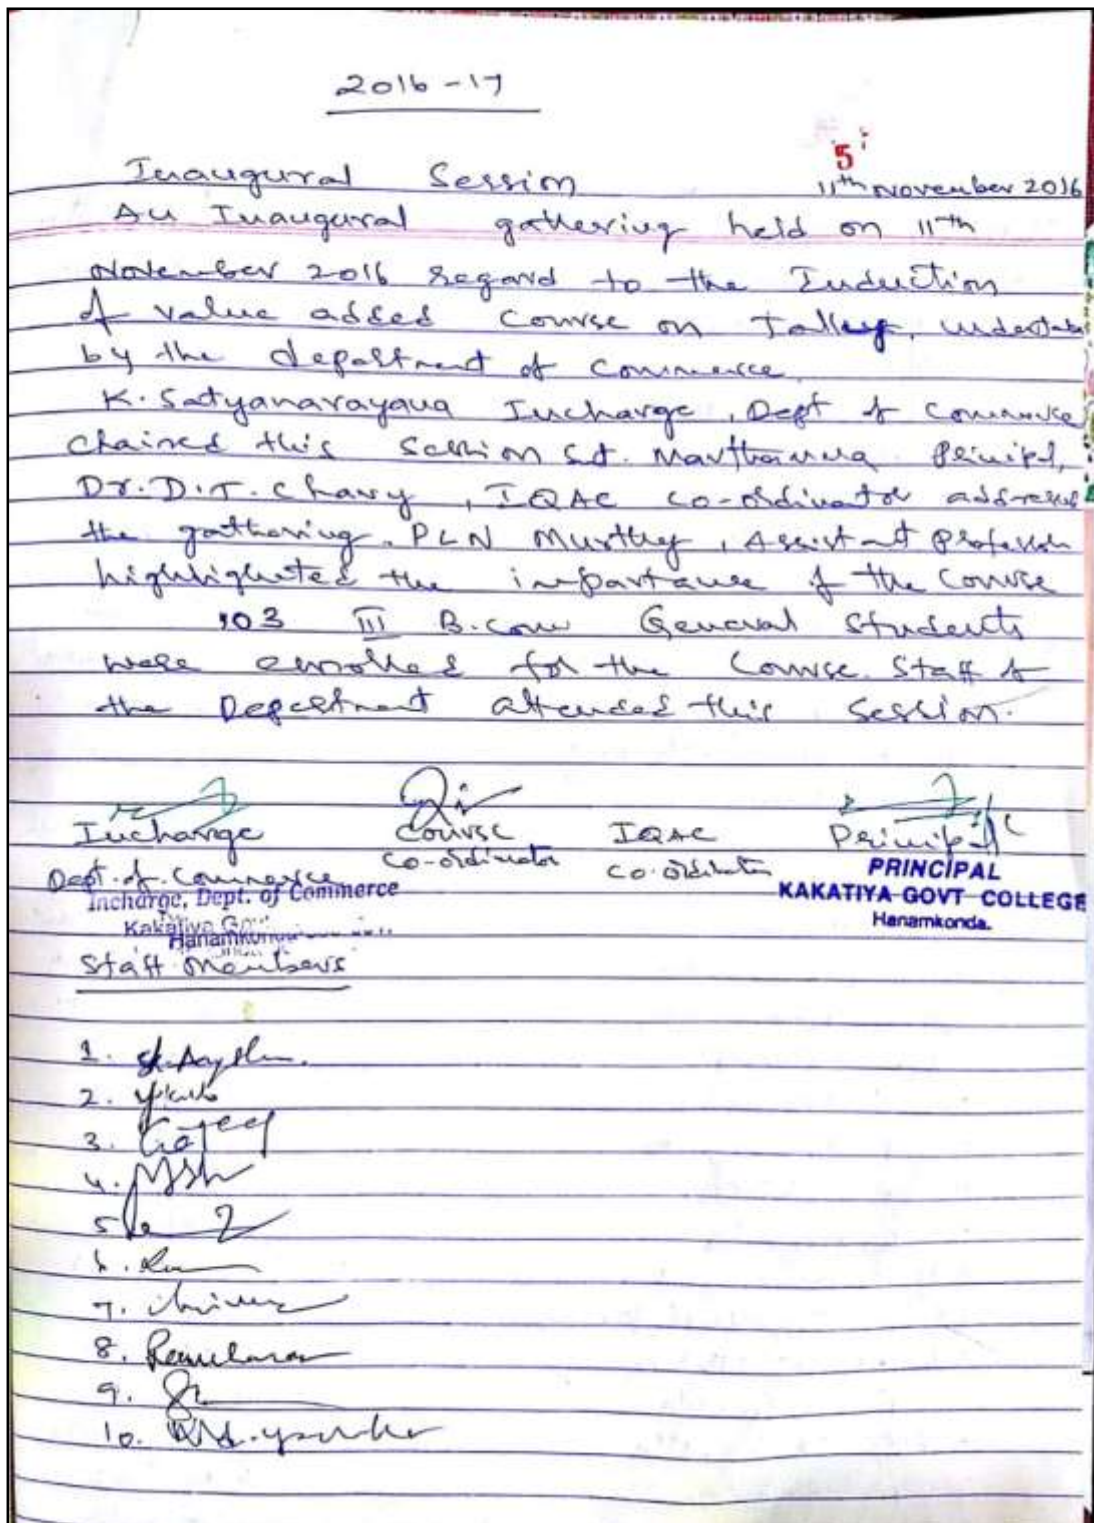 2016-17
5
Inaugural Session 11th November 2016
An Inaugural gathering held on 11th
November 2016 regard to the Induction
of value added Course on Talley,
by the department of Commerce.
K. Satyanarayana Incharge, Dept of Commerce
Chaired this Session Principal,
Dr. D.T. Chary, IQAC Co-ordinator addressed
the gathering. PLN Murthy, Assistant Professor
highlighted the importance of the Course
103 III B.com General Students
were enrolled for the Course. Staff of
the Department attended this Session.
Incharge Course IQAC Principal
Dept. of. Commerce Co-ordinator Co-ordinator PRINCIPAL
Incharge, Dept. of Commerce KAKATIYA GOVT COLLEGE
Kakatiya Hanamkonda.
Hanamkonda
Staff Members
1.
2.
3.
4.
5
6.
7.
8.
9.
10.